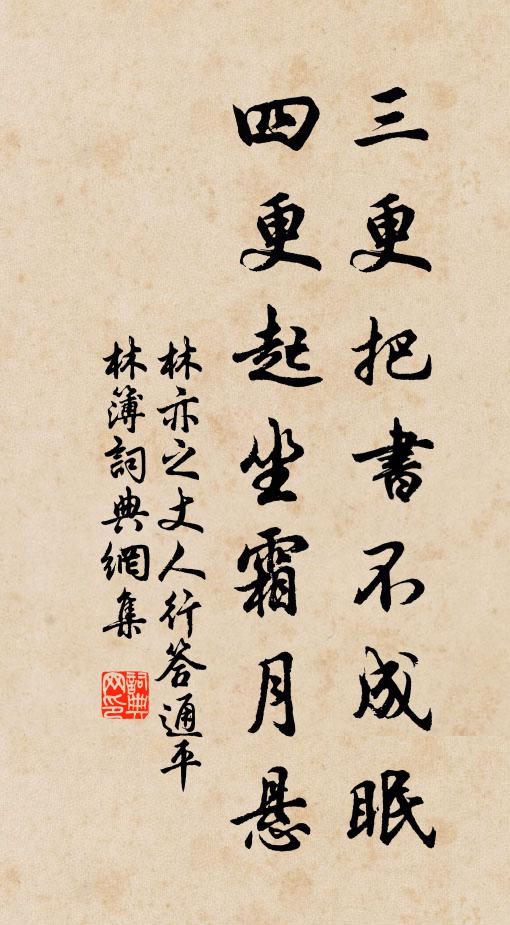 三更把書不成眠
四更起坐霜月悬
林亦之丈人行答通平
林簿詞典網集
詞典网印